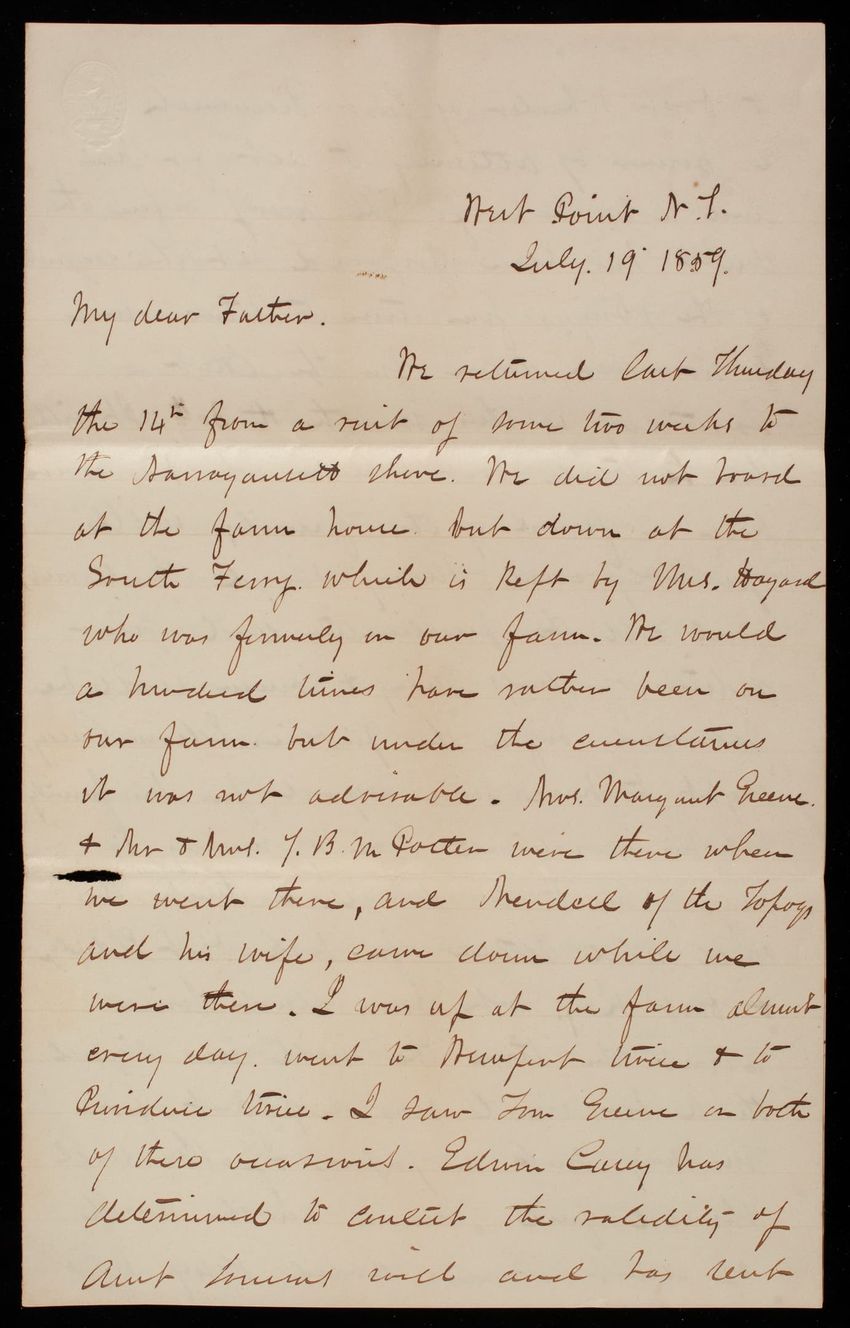 West Point N.Y.
July. 19 1859.
My dear Father.
We returned last Thursday
the 14th from a visit of some two weeks to
the Narragansett shore. We did not board
at the farm house. but down at the
South Ferry. which is kept by Mrs. Hazard
who was formerly on our farm. We would
a hundred times have rather been on
our farm. but under the circumstances
it was not advisable. Mrs. Margaret Greene.
& Mr & Mrs. T. B. M Potter were there when
we went there, and of the Topogs
and his wife, came down while we
were there. I was up at the farm almost
every day. went to Newport twice & to
Providence twice. I saw Tom Greene on both
of these occasions. Edwin Carey has
determined to contest the validity of
Aunt will and has sent